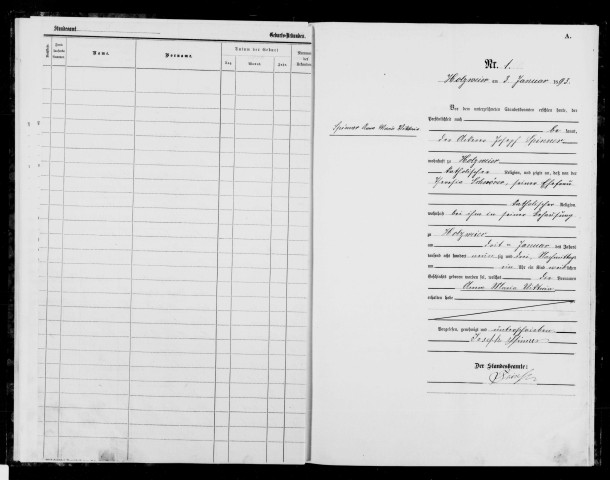 Standesamt
Geburts-Urkunden.
Name.
Vorname.
Datum der Geburt
Tag.
Monat.
Jahr.
Nummer
der
Urkunden
A.
Nr. 1.
Holzweier am 3. Januar 1893.
Vor dem unterzeichneten Standesbeamten erschien heute, der
Persönlichkeit nach
be kannt,
Spinner Anna Maria
der Ackerer Joseph Spinner
wohnhaft zu Holzweier
katholischer Religion, und zeigte an, daß von der
Theresia, seiner Ehefrau
katholischer Religion,
wohnhaft bei ihm in seiner Behausung
zu Holzweier
am Januar des Jahres
tausend acht hundert neun zig und drei, Nachmittags
um ein Uhr ein Kind weiblichen
Geschlechts geboren worden sei, welches die Vornamen
Anna Maria
erhalten habe
Vorgelesen, genehmigt und unterschrieben
Joseph Spinner
Der Standesbeamte: